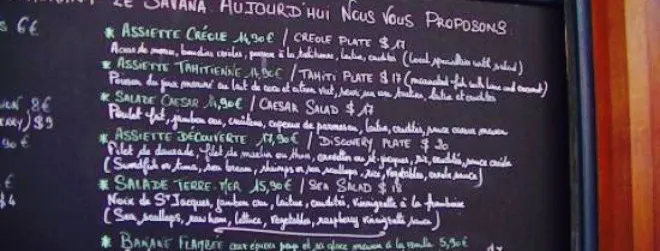 LE SAVANA AUJOURD'HUI NOUS VOUS PROPOSONS
s 6€
* ASSIETTE CRÉOLE 14,90€ / CREOLE PLATE $ 17
Acras de morue, boudins créoles, poisson à la tahitienne, laitue, crudités (local specialities with salad)
* ASSIETTE TAHITIENNE 14,90€ / TAHITI PLATE $ 17 (marinated fish with lime and coconut)
Poisson du jour mariné au lait de coco et citron vert, servi sur une laitue et crudités
* SALADE CAESAR 14,90€ / CAESAR SALAD $ 17
8€
Poulet fait, jambon cru, croûtons, copeaux de parmesan, laitue, crudités, sauce caesar maison
ERRY) $9
* ASSIETTE DÉCOUVERTE 17,90€ / DISCOVERY PLATE $ 20
90€
Filet de daurade, filet de marlin ou thon, crevettes ou st-jacques, riz, crudités, sauce créole
(Swordfish or tuna, sea bream, shrimps or sea scallops, rice, vegetables, creole sauce)
€
* SALADE TERRE-MER 15,90€ / SEA SALAD $ 18
$4
Noix de St Jacques, jambon cru, laitue, crudités, vinaigrette à la framboise
(Sea scallops, raw ham, lettuce, vegetables, raspberry vinaigrette sauce)
* BANANE FLAMBÉE aux épices pays et sa glace maison à la vanille 5,90€